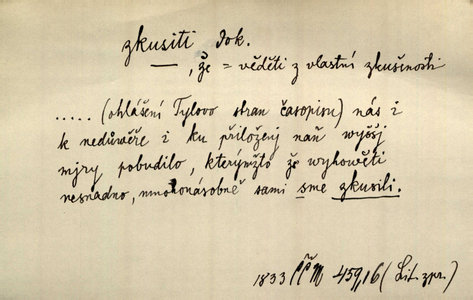 zkusiti dok.
—, že = věděti z vlastní zkušenosti
..... (ohlášení Tylovo stran časopisu) nás i
k nedůwěře i ku přiložený naň wyšší
mjry pobudilo, kterýmžto že wyhowěti
nesnadno, mnohonásobně sami sme zkusili.
1833 ČČM 459,16 (Lit. zpr.)